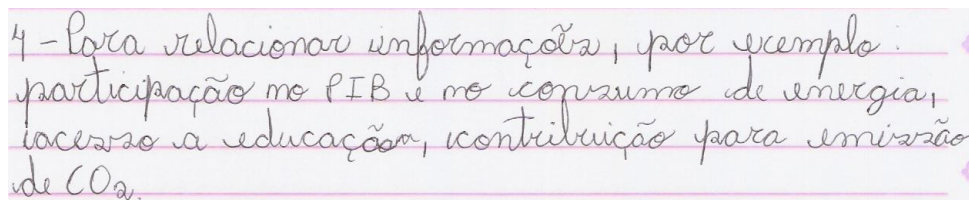 4 - Para relacionar informações, por exemplo:
participação no PIB e no consumo de energia,
acesso a educação, contribuição para emissão
de CO2.